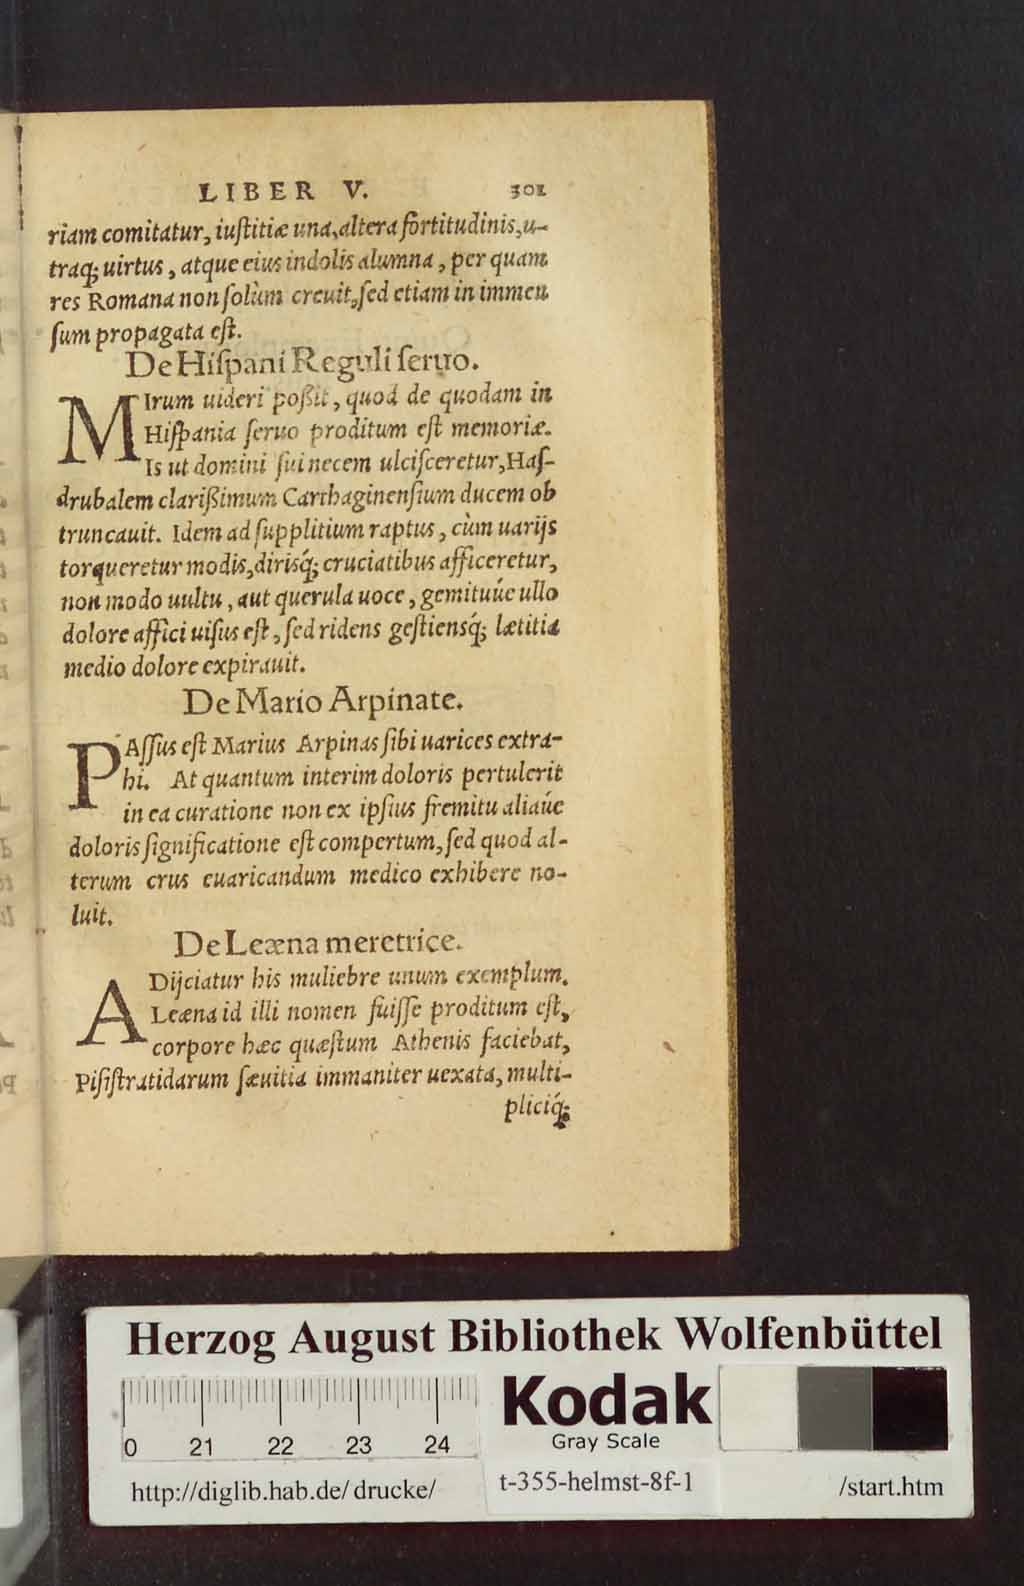 LIBER V. 301
riam comitatur, iuſtitiæ una, altera fortitudinis, u-
traq; uirtus, atque eius indolis alumna, per quam
res Romana non ſolùm creuit, ſed etiam in immen
ſum propagata eſt.
De Hiſpani Reguli ſeruo.
MIrum uideri poßit, quod de quodam in
Hiſpania ſeruo proditum eſt memoriæ.
Is ut domini ſui necem ulciſceretur, Haſ-
drubalem clarißimum Carthaginenſium ducem ob
truncauit. Idem ad ſupplitium raptus, cùm uarijs
torqueretur modis, dirisq́; cruciatibus afficeretur,
non modo uultu, aut querula uoce, gemituúe ullo
dolore affici uiſus eſt, ſed ridens geſtiensq́; lætitia
medio dolore expirauit.
De Mario Arpinate.
PAſſus eſt Marius Arpinas ſibi uarices extra-
hi. At quantum interim doloris pertulerit
in ea curatione non ex ipſius fremitu aliaúe
doloris ſignificatione eſt compertum, ſed quod al-
terum crus euaricandum medico exhibere no-
luit.
De Leæna meretrice.
ADijciatur his muliebre unum exemplum.
Leæna id illi nomen fuiſſe proditum eſt,
corpore hæc quæſtum Athenis faciebat,
Piſiſtratidarum ſæuitia immaniter uexata, multi-
pliciq́;
Herzog August Bibliothek Wolfenbüttel
0 21 22 23 24
Kodak
Gray Scale
http://diglib.hab.de/drucke/ t-355-helmst-8f-1 /start.htm